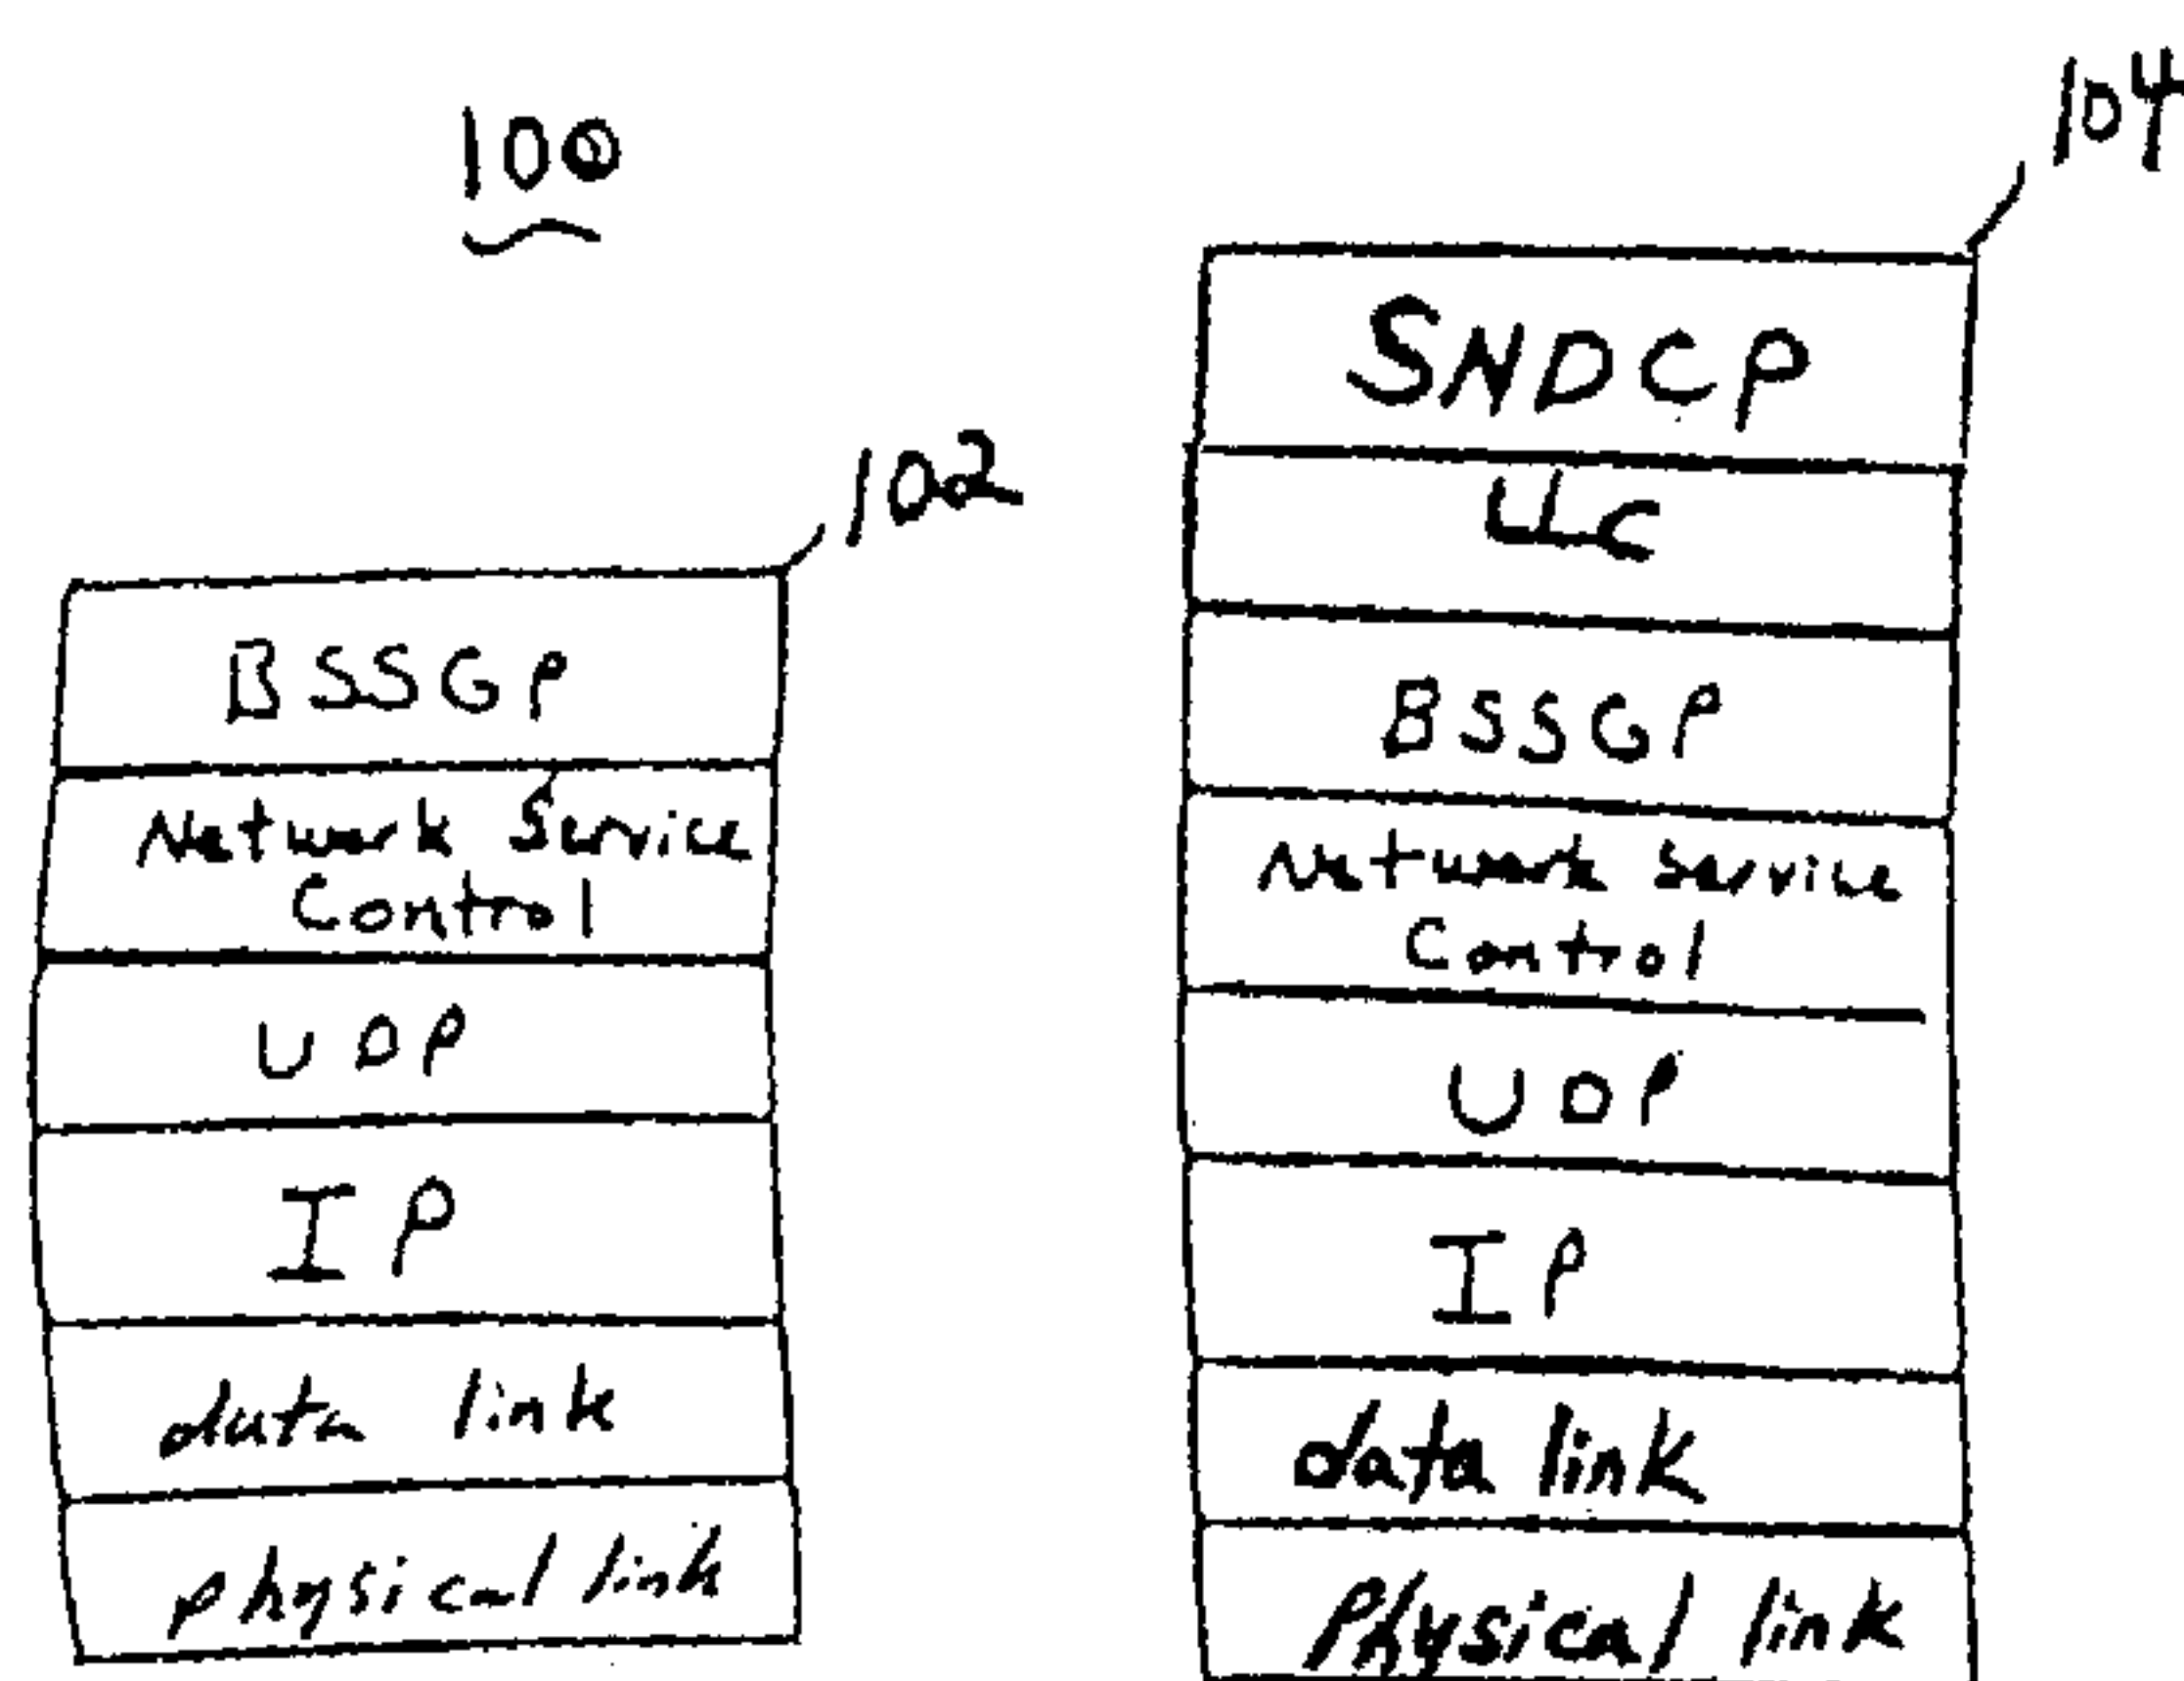 100
102
BSSGP
Network Service
Control
UDP
IP
data link
physical link
104
SNDCP
LLC
BSSGP
Network Service
Control
UDP
IP
data link
Physical link